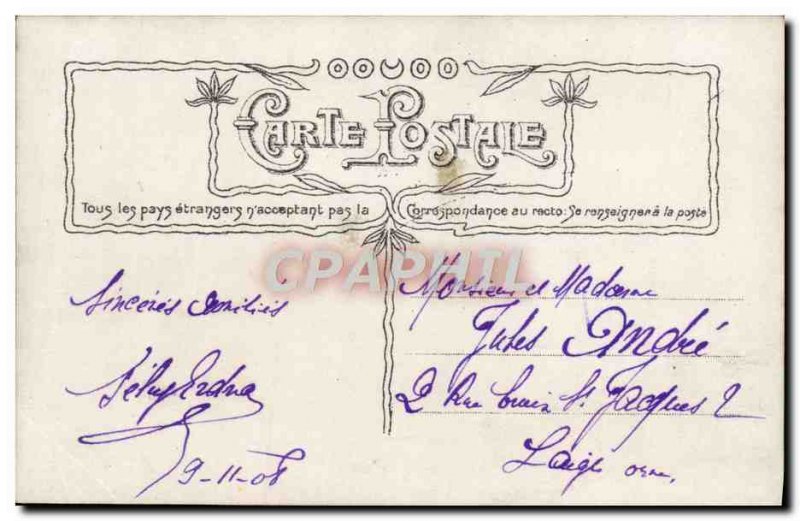 CARTE POSTALE
Tous les pays étrangers n'acceptant pas la Correspondance au recto: Se renseigner à la poste
CPAPHIL
Sincères Amitiés
9-11-08
Monsieur et Madame
Jules André
2 Rue St Jacques 2
Laigle Orne,